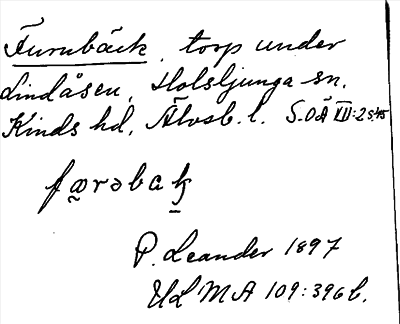 Furubäck, torp under
Lindåsen, Holsljunga sn.
Kinds hd, Älvsb. l. S.O.Ä VII:2 s.45
P. Leander 1897
ULMA 109:396 b.